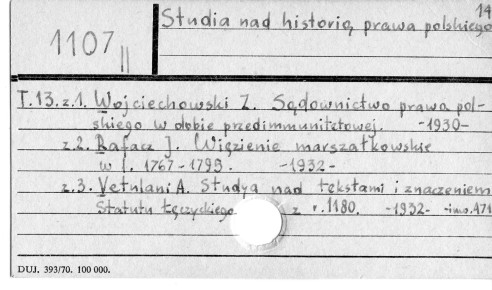 14
Studia nad historią prawa polskiego
1107
II
T.13. z.1. Wojciechowski Z. Sądownictwo prawa pol-
skiego w dobie przedimmunitetowej. -1930-
z.2. Rafacz J. Więzienie marszałkowskie
w l. 1767-1795. -1932-
z.3. Vetulani A. Studya nad tekstami i znaczeniem
Statutu Łęczyckiego z r. 1180. -1932- inw. 471
DUJ. 393/70. 100 000.